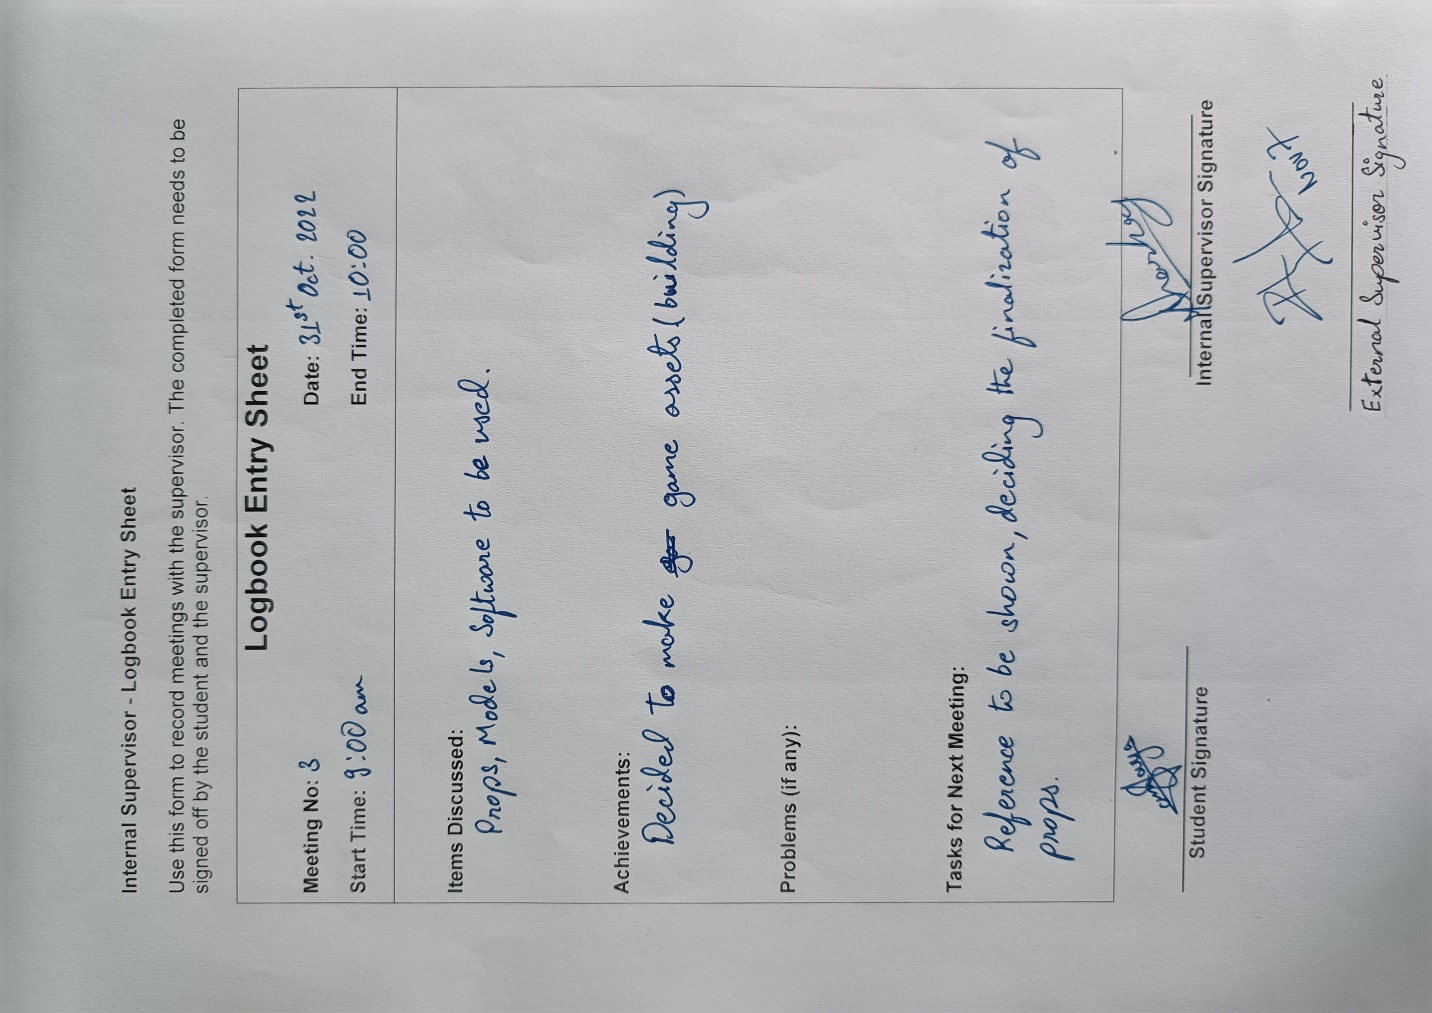 Internal Supervisor - Logbook Entry Sheet
Use this form to record meetings with the supervisor. The completed form needs to be
signed off by the student and the supervisor.
Logbook Entry Sheet
Meeting No: 3 Date: 31st Oct. 2022
Start Time: 9:00 am End Time: 10:00
Items Discussed:
Props, Models, Software to be used.
Achievements:
Decided to make game assets (building)
Problems (if any):
Tasks for Next Meeting:
Reference to be shown, deciding the finalization of
props.
Student Signature Internal Supervisor Signature
Nov 7
External Supervisor Signature